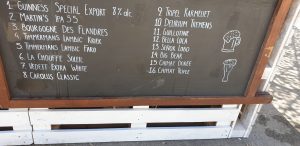 1. GUINNESS SPECIAL EXPORT 8% alc.
2. MARTIN'S IPA 55
3. BOURGOGNE DES FLANDRES
4. TIMMERMANS LAMBIC KRIEK
5. TIMMERMANS LAMBIC FARO
6. LA CHOUFFE SOLEIL
7. VEDETT EXTRA WHITE
8 CAROLUS CLASSIC
9 TRIPEL KARMELIET
10 DELIRIUM TREMENS
11 GUILLOTINE
12 BELLA LOLA
13 SEÑOR LOBO
14 BIG BEAR
15 CHIMAY DORÉE
16 CHIMAY ROUGE